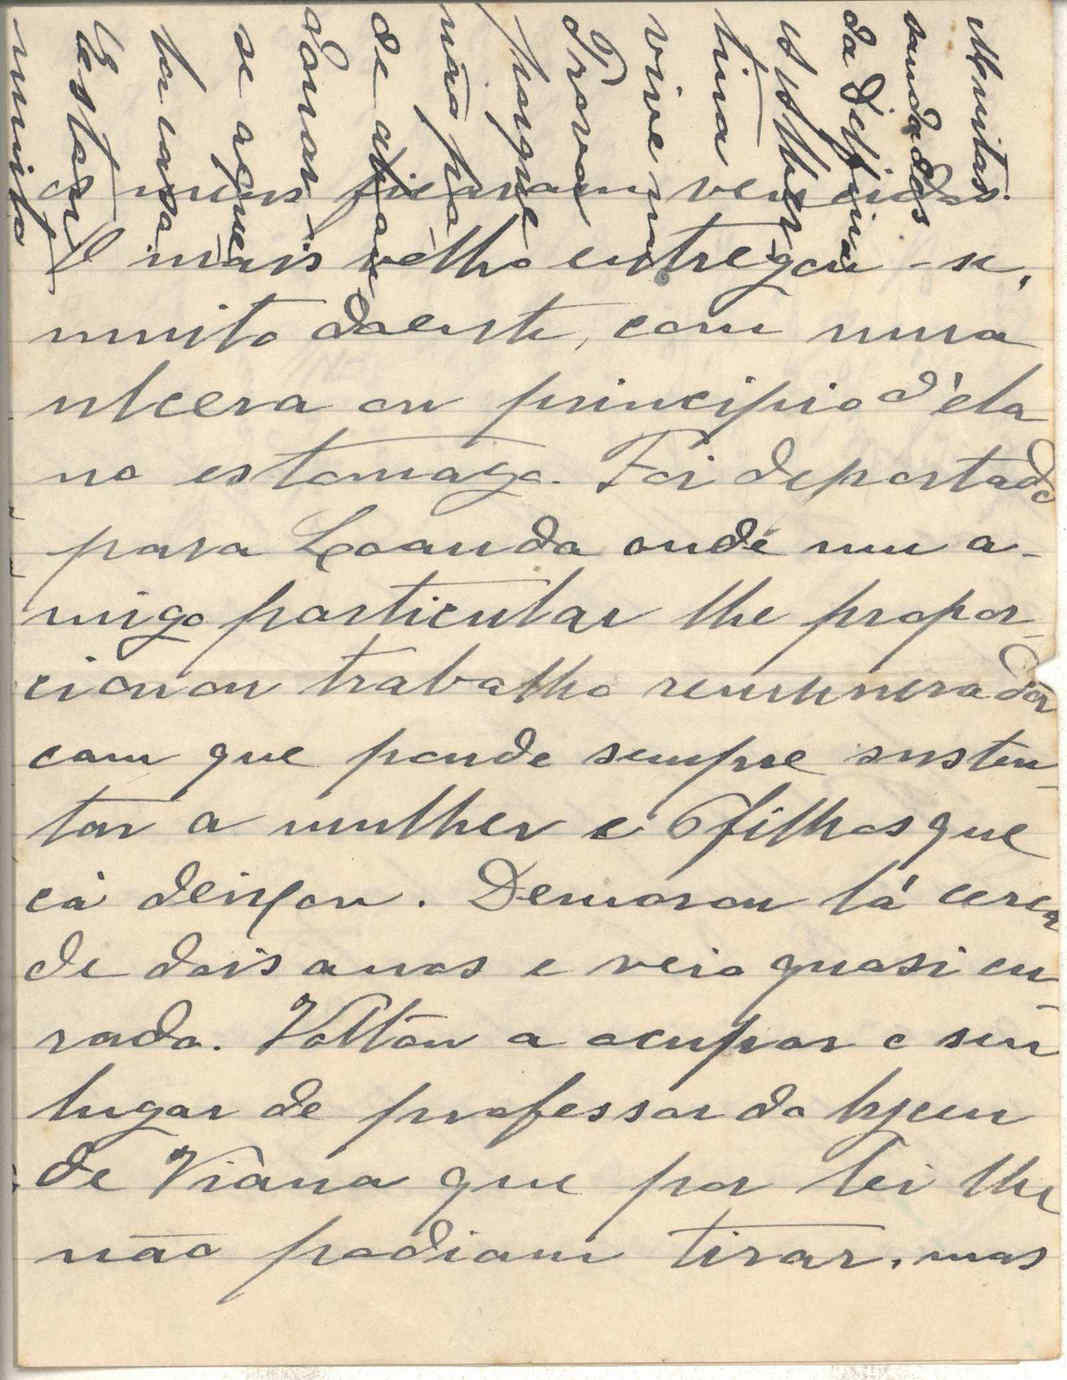 os meus ficaram vencidos.
O mais velho entregou-se,
muito doente, com uma
ulcera ou principio d'ela
no estomago. Foi deportado
para Loanda onde um a-
migo particular lhe propor-
cionou trabalho remunerador
com que poude sempre susten-
tar a mulher e 6 filhos que
cá deixou. Demorou lá cerca
de dois anos e veio quasi cu-
rado. Voltou a ocupar o seu
lugar de professor do lyceu
de Viana que por lei lhe
não podiam tirar, mas
Muitas
saudades
da Delfina
A Albertina
vive na
Trovoa
porque
não po
de aban
donar
se aque
la casa
Estar
muito